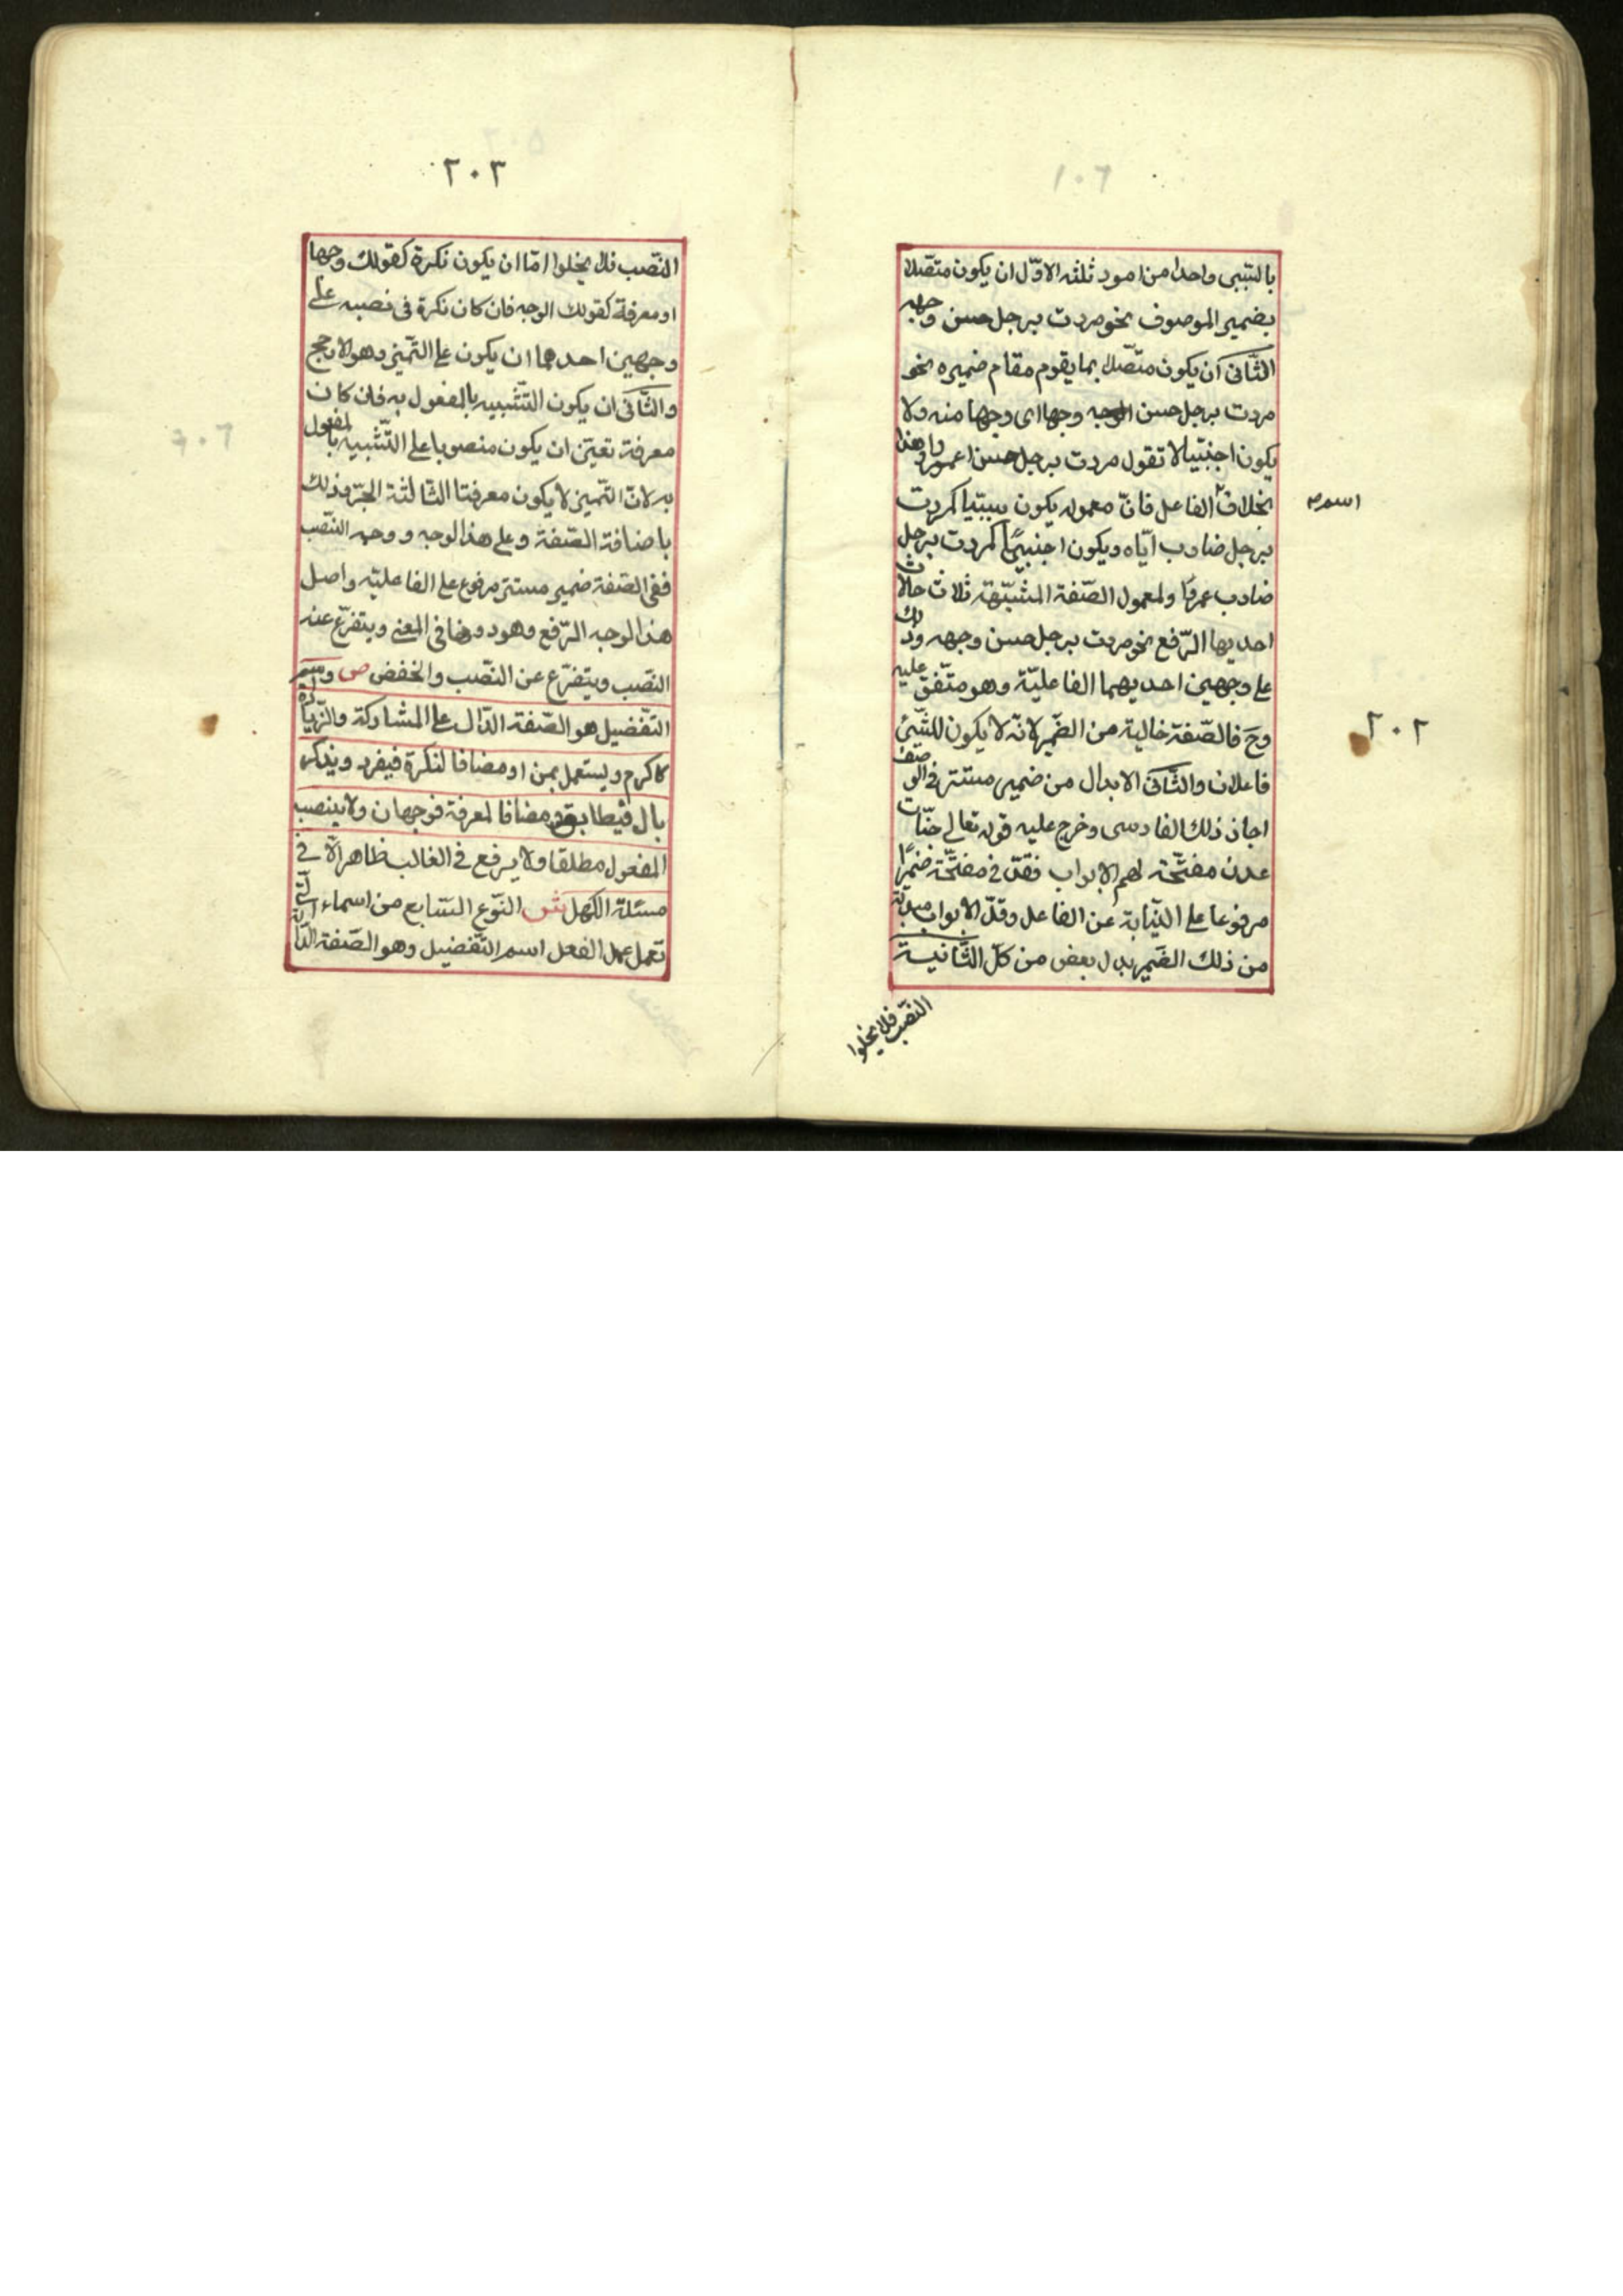 بالسّببى واحدا من امور ثلثه الاوّل ان يكون متصّلا
بضمير الموصوف نحو مردت برجل حسن وجهه
الثّانى ان يكون متصّلا بما يقوم مقام ضميره نحو
مردت برجل حسن الوجه وجها اى وجها منه ولا
يكون اجنبّيا لا تقول مردت برجل حسن اعمروا وهذا
بخلاف الفاعل فانّ معموله يكون سببّيا كمردت
اسم
برجل ضارب ايّاه ويكون اجنبيًّا كمردت برجل
ضارب عمروًا ولمعمول الصّفة المشبّهة ثلاث حالات
احديها الرّفع نحو مردت برجل حسن وجهه وذلك
على وجهين احديهما الفاعليّة وهو متّفق عليه
وح فالصّفة خالية من الضّمير لانّه لا يكون للشّئ
٢٠٢
فاعلان والثّانى الابدال من ضمير مستتر فى الوصف
اجاز ذلك الفارسى وخرج عليه قوله تعالى جنّات
عدن مفتّحة لهم الابواب فقدّر فى مفتّحة ضميرًا
مرفوعا على النّيابة عن الفاعل وقدّر الابواب مبدلة
من ذلك الضّمير بدل بعض من كلّ الثّانية
النّصب فلا يخلوا
٢٠٣
النّصب فلا يخلوا امّا ان يكون نكرة كقولك وجها
او معرفة كقولك الوجه فان كان نكرة فى نصبه على
وجهين احدهما ان يكون على التّميز وهو الارجح
والثّانى ان يكون التّشبيه بالمفعول به فان كان
معرفة تعيّن ان يكون منصوبا على التّشبيه بالمفعول
به لانّ التّميز لا يكون معرفتا الثّالثة الجرّ وذلك
باضافة الصّفة وعلى هذا الوجه ووجه النّصب
ففى الصّفة ضمير مستتر مرفوع على الفاعليّة واصل
هذا الوجه الرّفع وهو دونها فى المعنى ويتفرّع عنه
النّصب ويتفرّع عن النّصب والخفض ص واسم
التّفضيل هو الصّفة الدّال على المشاركة والزّيادة
كاكرم ويستعمل بمن او مضافا لنكرة فيفرد ويذكر
بال فيطابق ومضافا لمعرفة فوجهان ولا ينصب
المفعول مطلقا ولا يرفع فى الغالب ظاهر الّا فى
مسئلة الكهل ش النّوع السّابع من اسماء الّتى
تعمل عمل الفعل اسم التّفضيل وهو الصّفة الدّالة